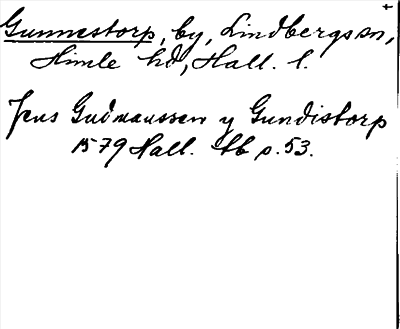 Gunnestorp, by, Lindbergs sn,
Himle hd, Hall. l.
Jens Gudmanssen y Gundistorp
1579 Hall. tb s. 53.